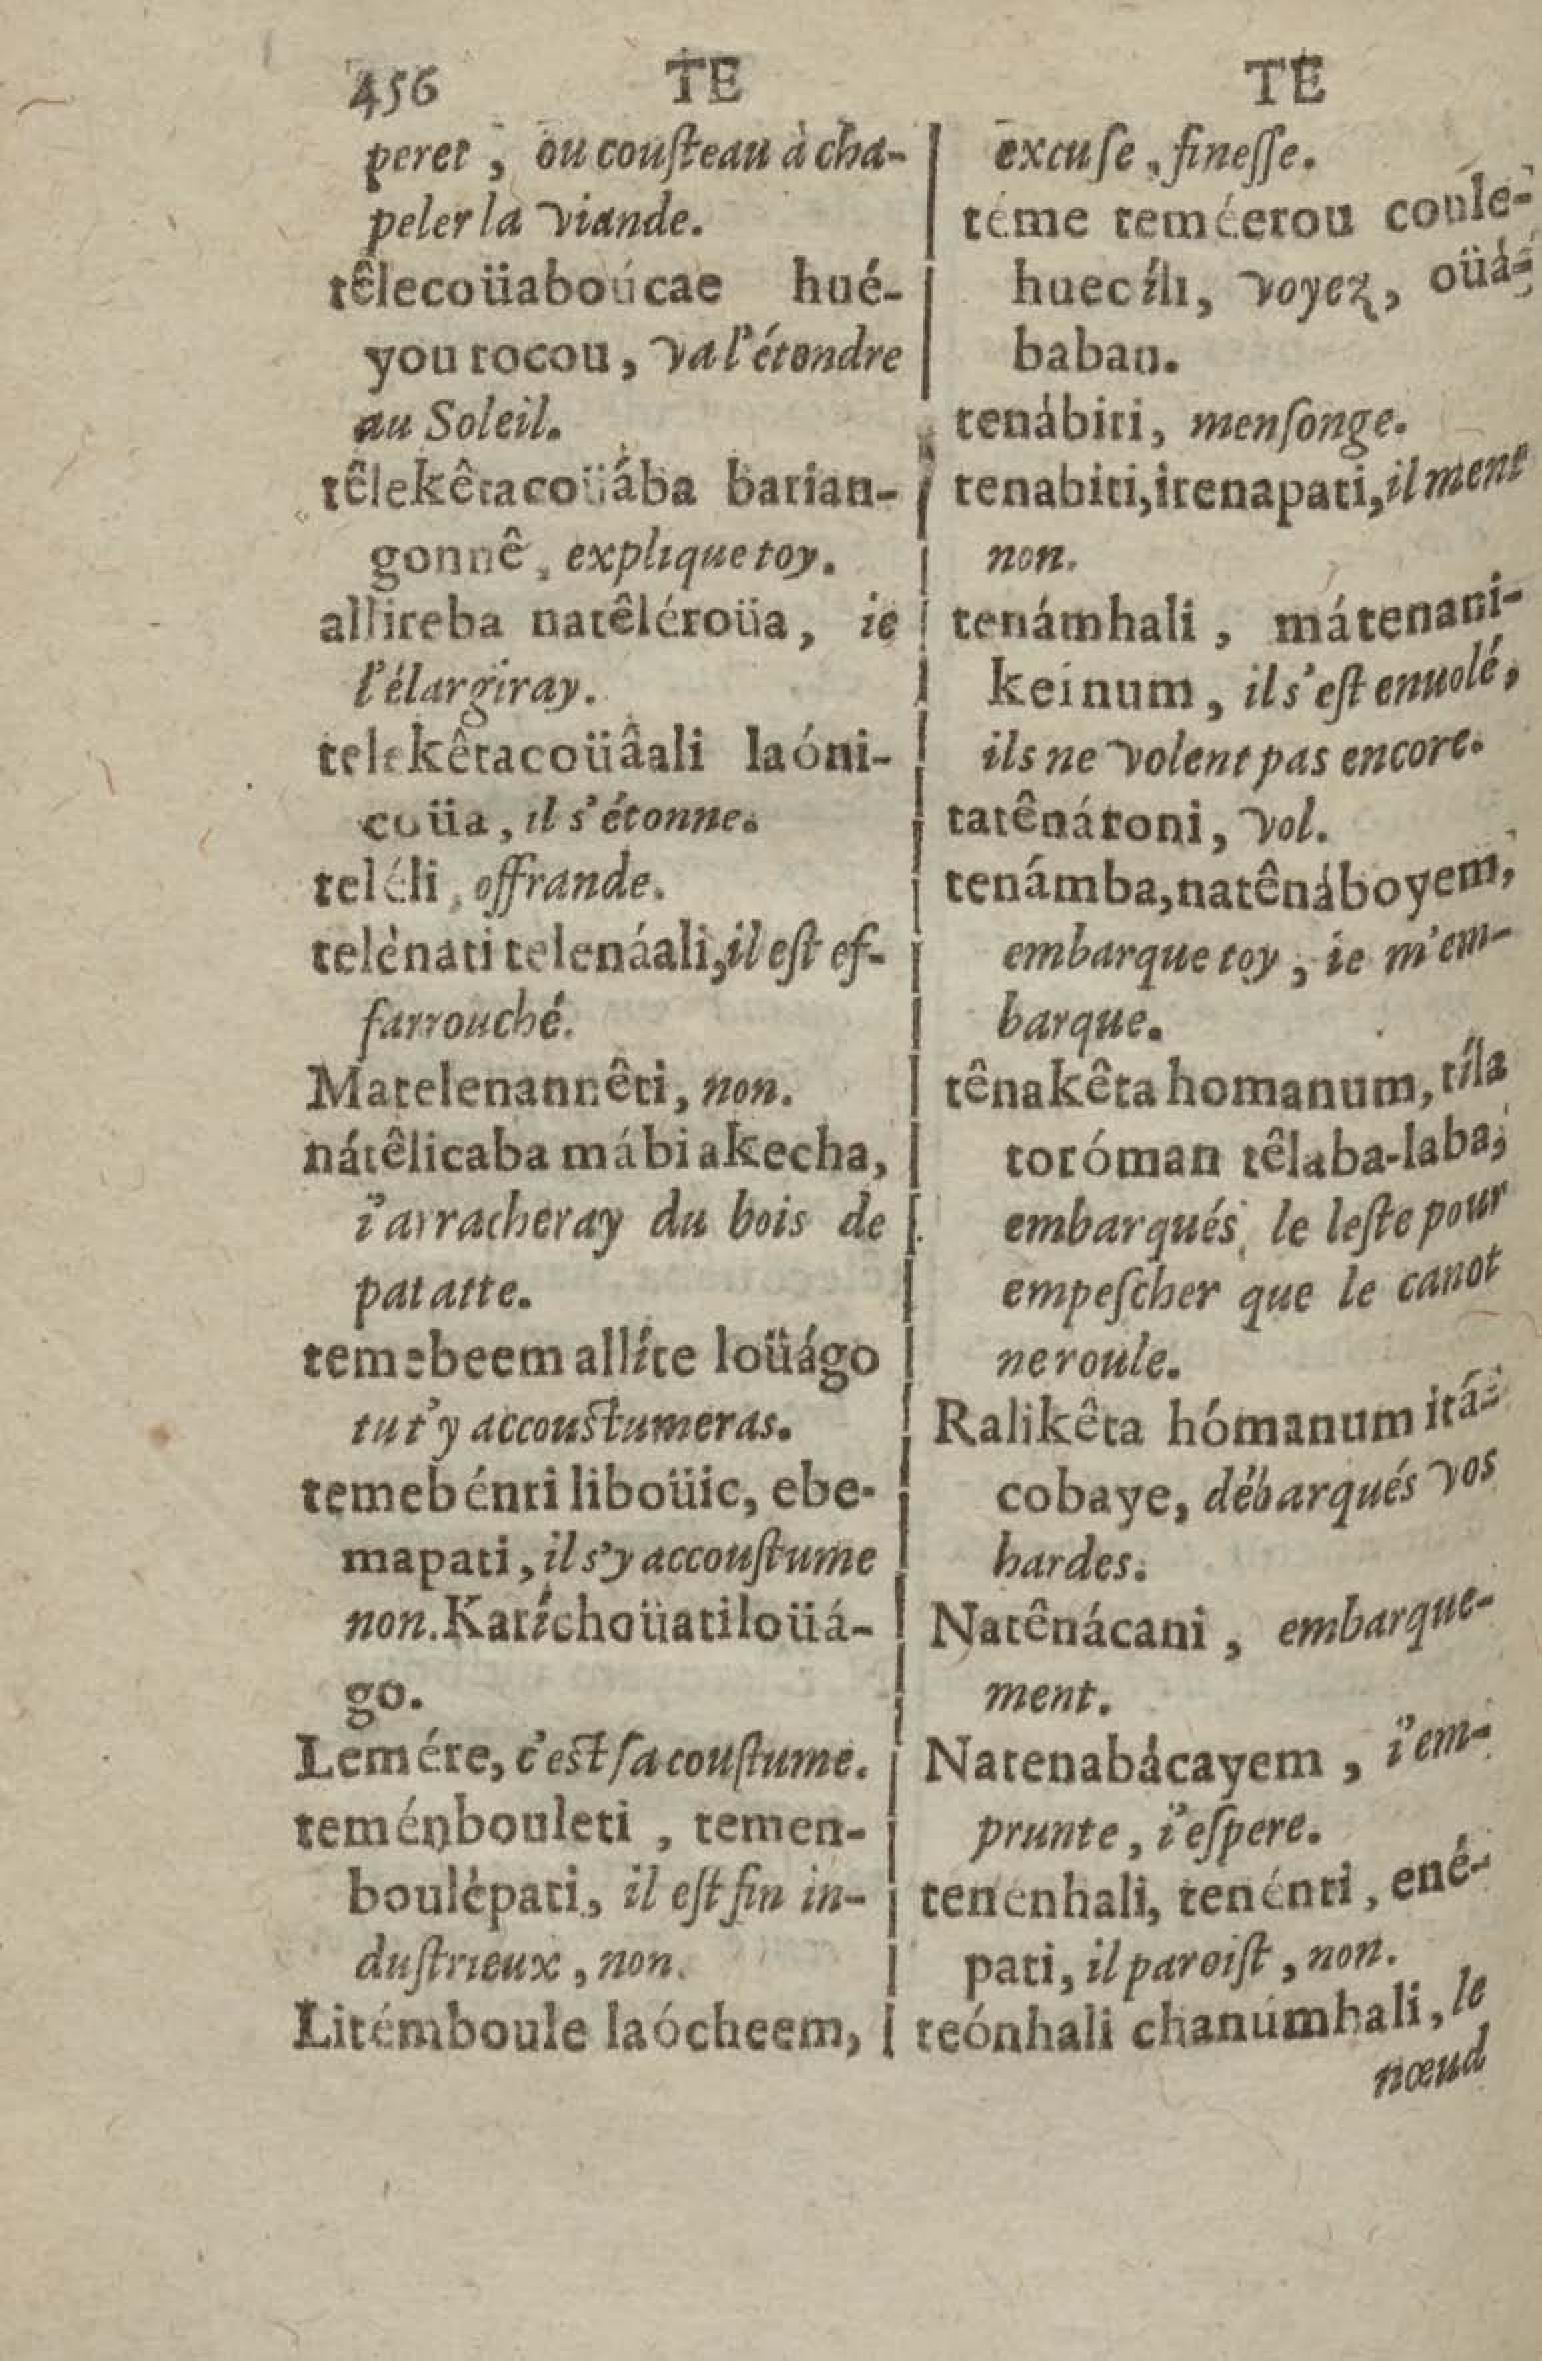 456 TE TE
peret, ou cousteau à cha-
peler la viande.
têlecoüaboúcae hué-
you rocou, va l'étendre
au Soleil.
têlekêtacoüába barian-
gonnê, explique toy.
allireba natêléroüa, ie
l'élargiray.
telekêtacoüâali laóni-
coüa, il s'étonne.
teléli, offrande.
telénati telenáali, il est ef-
farrouché.
Matelenannêti, non.
nátêlicaba mábi akecha,
i'arracheray du bois de
patatte.
temebeem allíte loüágo
tu t'y accoustumeras.
temebénti liboüic, ebe-
mapati, il s'y accoustume
non. Katíchoüatiloüá-
go.
Lemére, c'est sa coustume.
teménbouleti, temen-
boulépati, il est fin in-
dustrieux, non.
Litémboule laócheem,
excuse, finesse.
téme teméerou coule-
huecíli, voyez, oüá-
babau.
tenábiti, mensonge.
tenabiti, itenapati, il ment
non.
tenámhali, mátenani-
keínum, il s'est enuolé,
ils ne volent pas encore.
tatênátoni, vol.
tenámba, natênáboyem,
embarque toy, ie m'em-
barque.
tênakêta homanum, tíla
toróman têlaba-laba,
embarqués, le leste pour
empescher que le canot
ne roule.
Ralikêta hómanum itá-
cobaye, débarqués vos
hardes.
Natênácani, embarque-
ment.
Natenabácayem, i'em-
prunte, i'espere.
tenenhali, tenénti, ené-
pati, il paroist, non.
teónhali chanúmhali, le
nœud